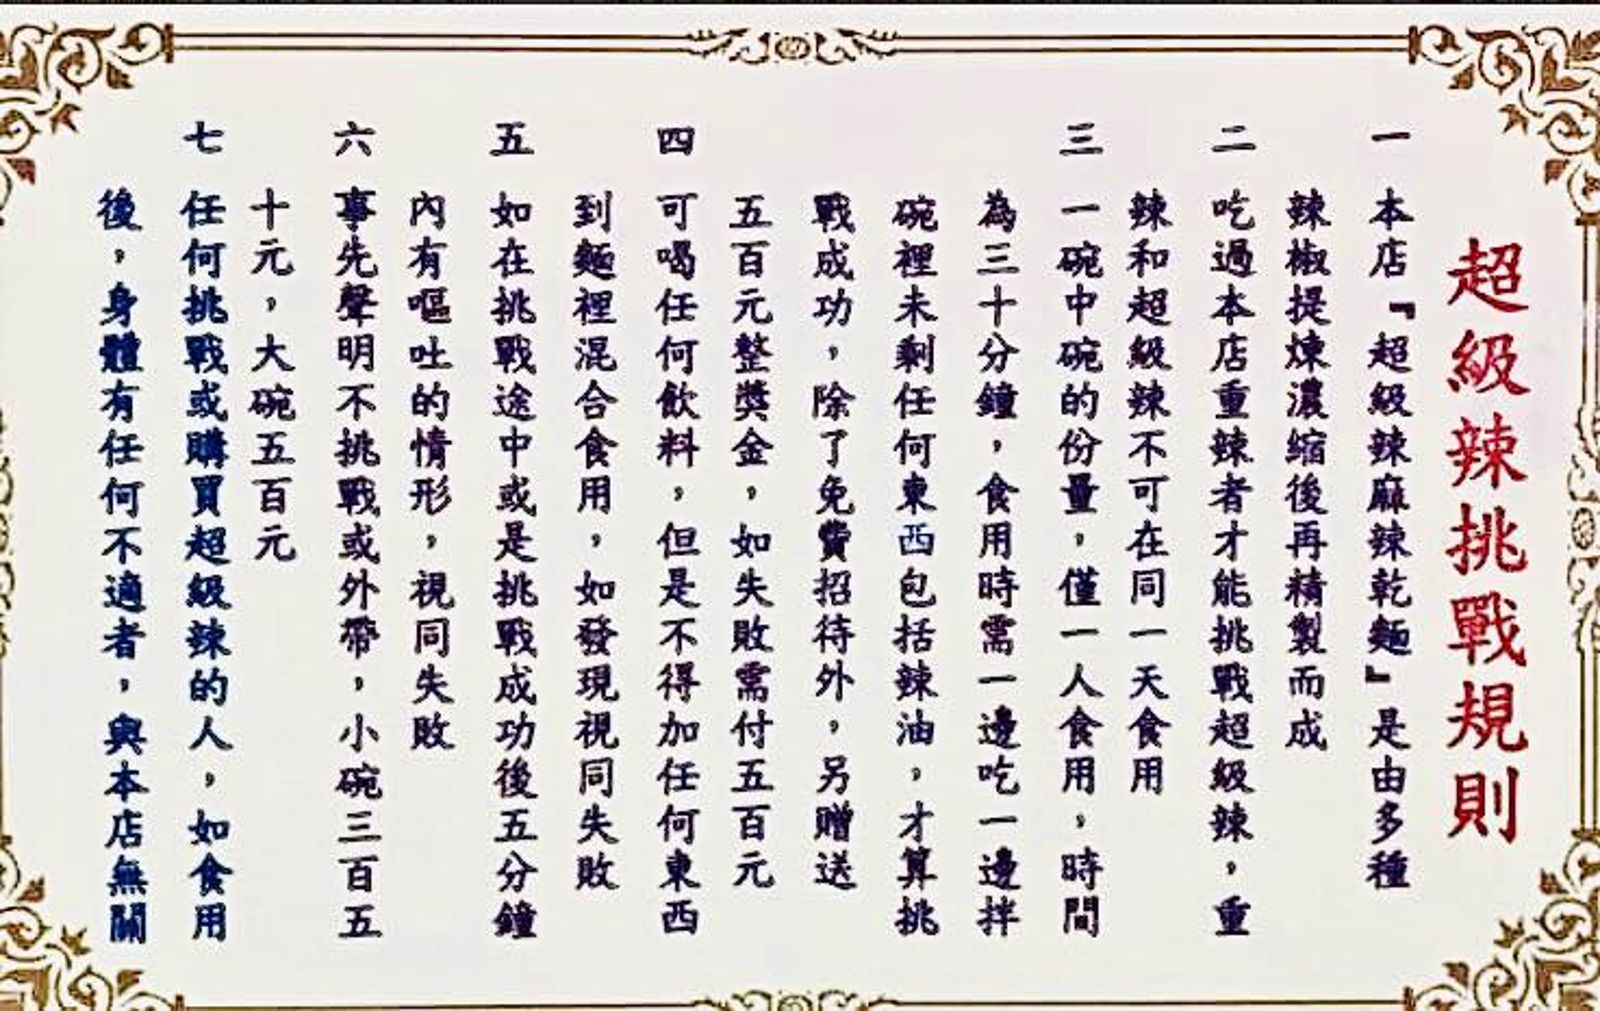 超級辣挑戰規則
一 本店『超級辣麻辣乾麵』是由多種
辣椒提煉濃縮後再精製而成
二 吃過本店重辣者才能挑戰超級辣，重
辣和超級辣不可在同一天食用
三 一碗中碗的份量，僅一人食用，時間
為三十分鐘，食用時需一邊吃一邊拌
碗裡未剩任何東西包括辣油，才算挑
戰成功，除了免費招待外，另贈送
五百元整獎金，如失敗需付五百元
四 可喝任何飲料，但是不得加任何東西
到麵裡混合食用，如發現視同失敗
五 如在挑戰途中或是挑戰成功後五分鐘
內有嘔吐的情形，視同失敗
六 事先聲明不挑戰或外帶，小碗三百五
十元，大碗五百元
七 任何挑戰或購買超級辣的人，如食用
後，身體有任何不適者，與本店無關